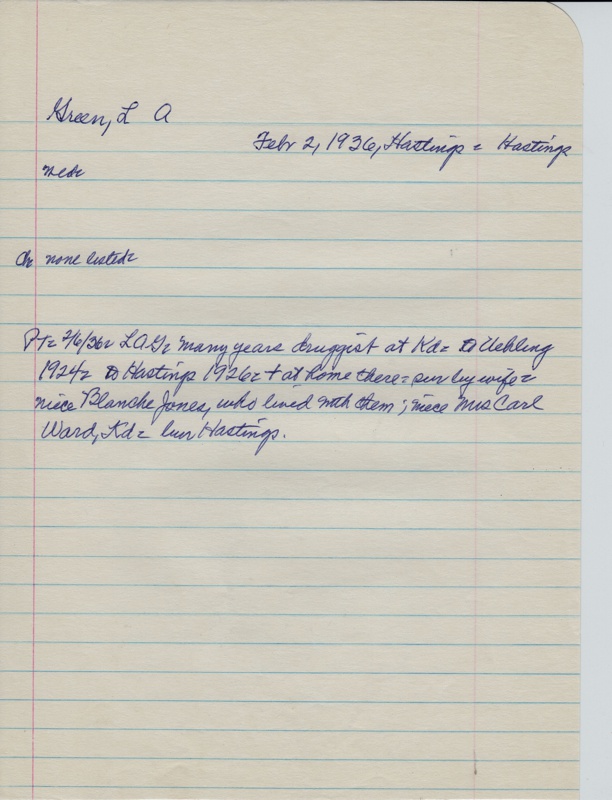 Green, L A
Febr 2, 1936, Hastings = Hastings
Nebr
Ch none listed=
Pt= 2/6/36= LAG= many years druggist at Kd= to Uehling
1924= to Hastings 1926= + at home there= sur by wife=
niece Blanche Jones, who lived with them; niece Mrs Carl
Ward, Kd= bur Hastings.